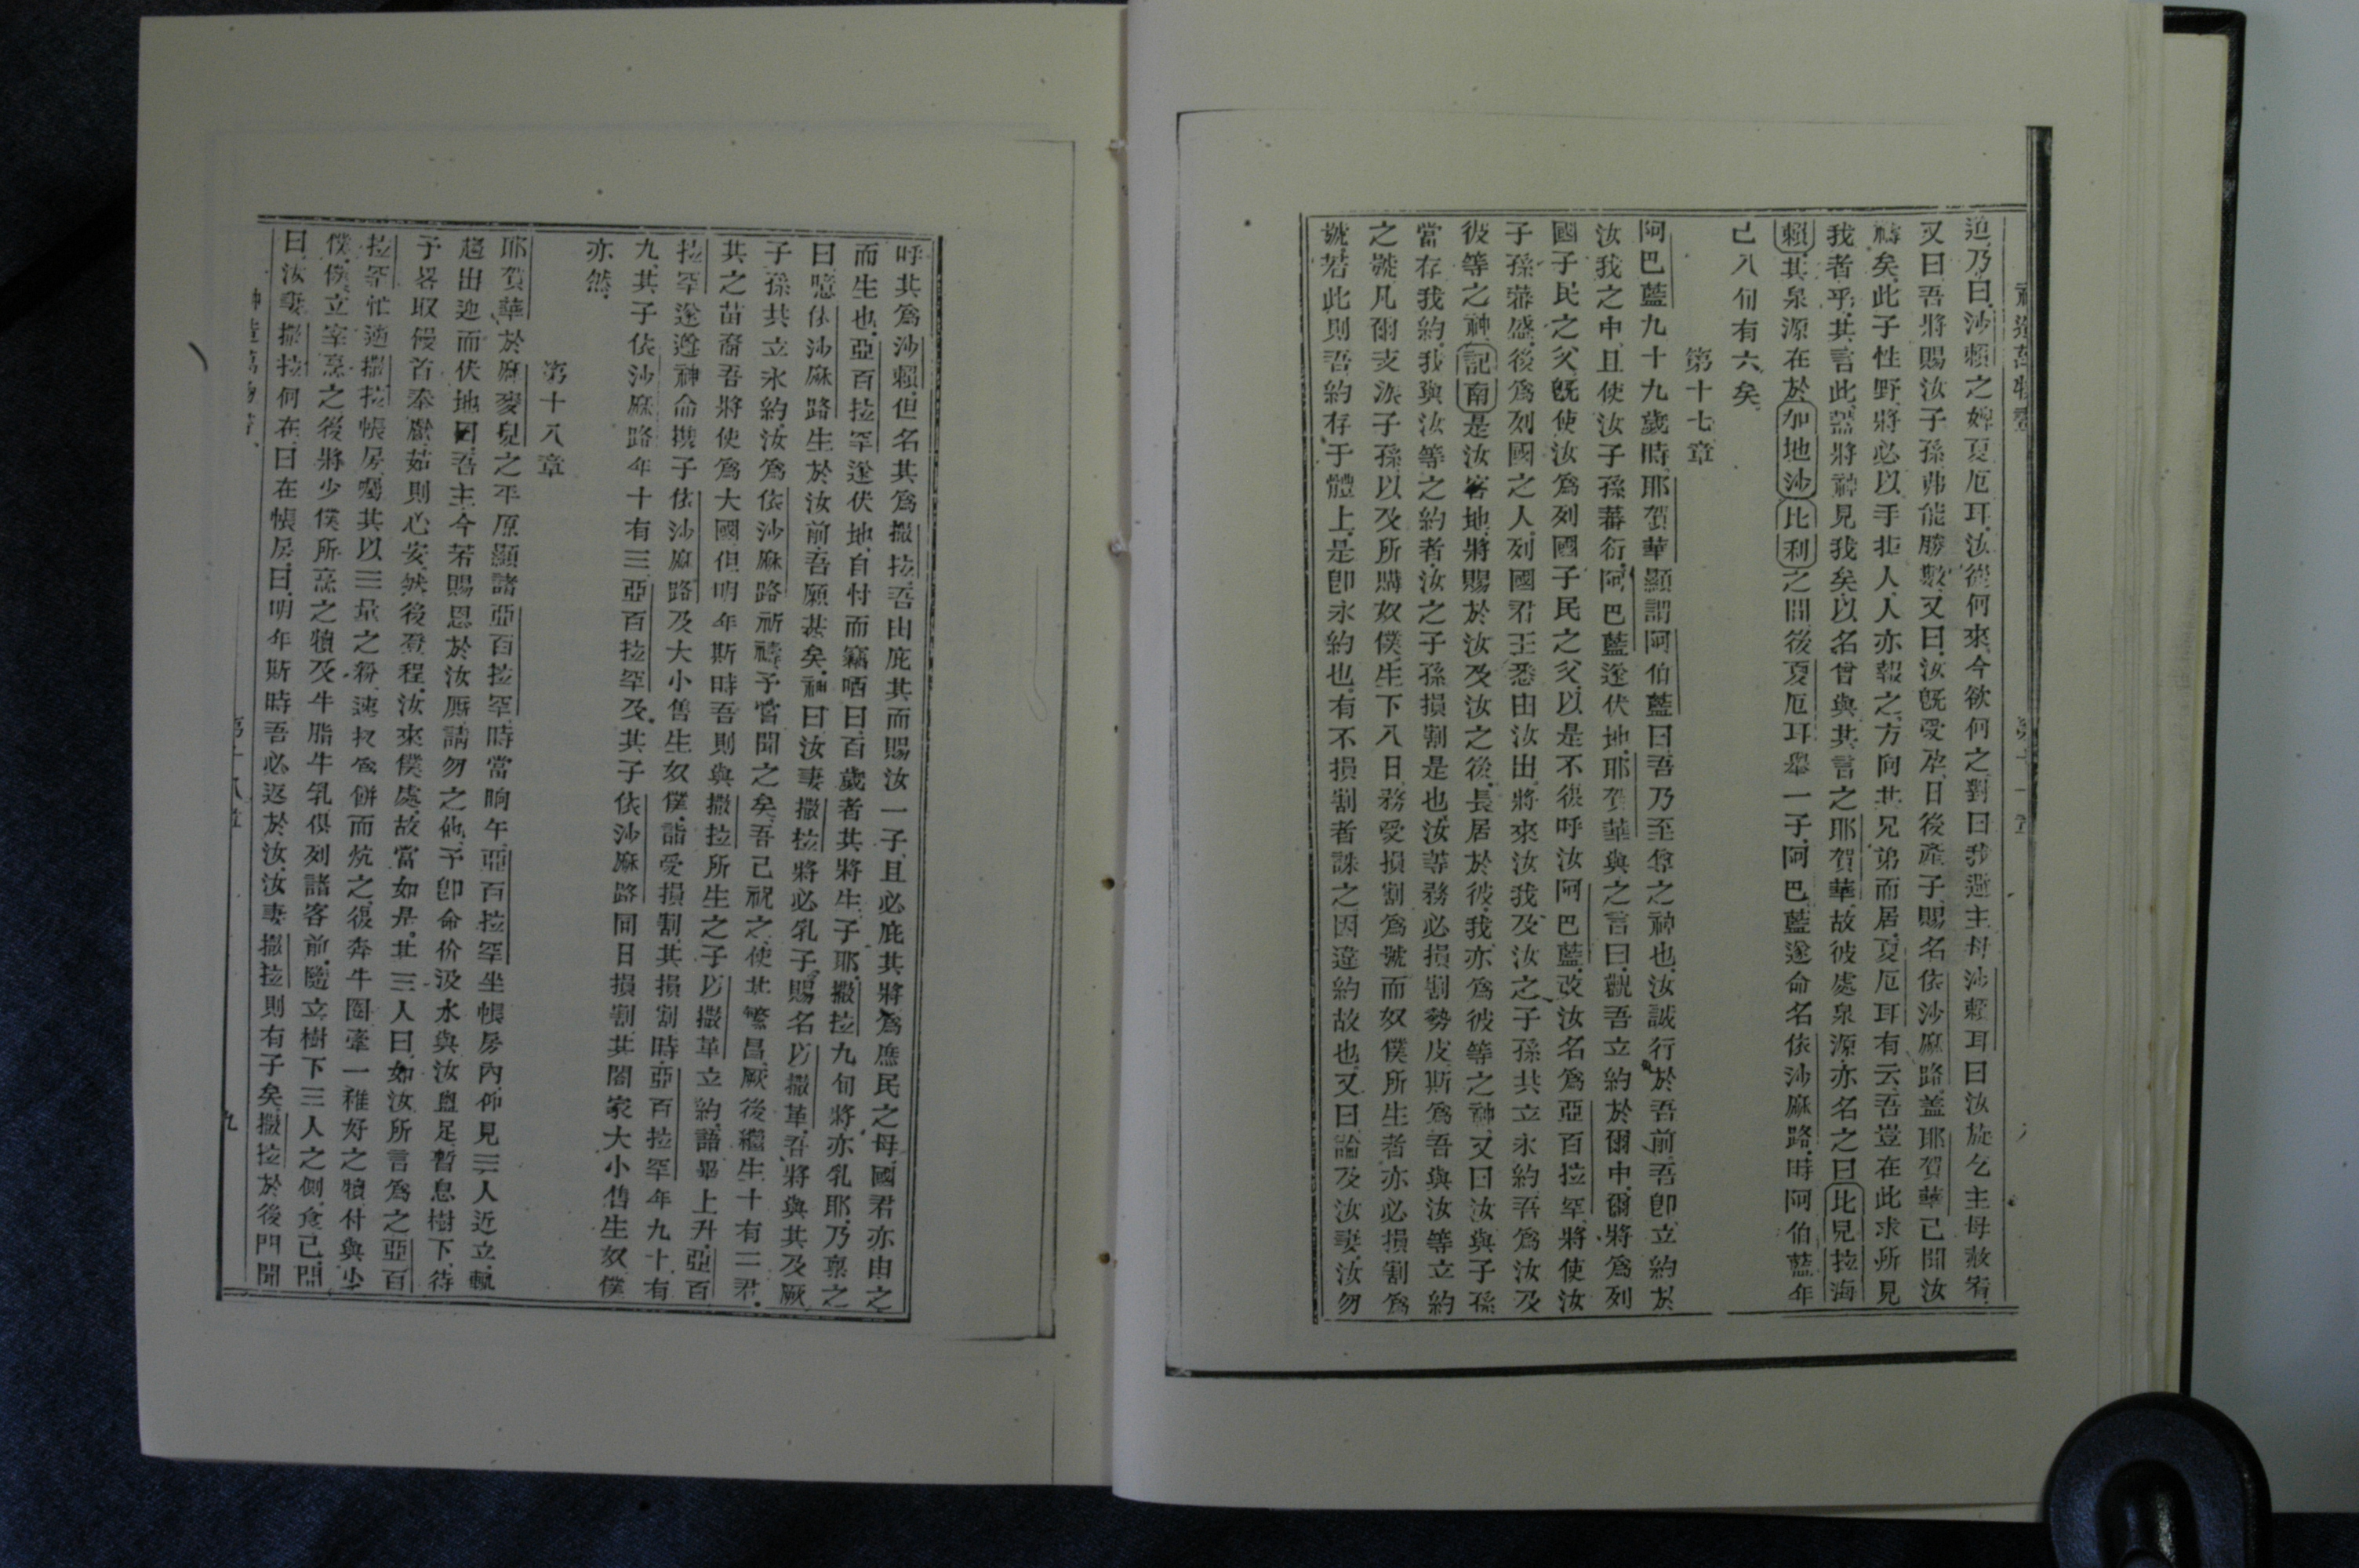 迫、乃曰、沙賴之婢夏厄耳、汝從何來、今欲何之、對曰我避主母沙賴耳曰汝旋乞主母赦宥、
又曰吾將賜汝子孫弗能勝數、又曰、汝旣受孕、日後產子、賜名依沙麻路、盖耶賀華己聞汝
禱矣、此子性野、將必以手拒人、人亦報之、方向其兄弟而居、夏厄耳有云、吾豈在此求所見
我者乎、其言此、盖將神見我矣、以名曾與其言之耶賀華、故彼處泉源亦名之曰比見拉海
賴、其泉源在於加地沙比利之間後夏厄耳舉一子、阿巴藍遂命名依沙麻路、時阿伯藍年
己八旬有六矣、
第十七章
阿巴藍九十九歲時、耶賀華顯謂阿伯藍曰、吾乃至尊之神也、汝誠行於吾前、吾卽立約於
汝我之中、且使汝子孫蕃衍、阿巴藍遂伏地、耶賀華與之言曰、觀吾立約於爾中、爾將爲列
國子民之父、旣使汝爲列國子民之父、以是不復呼汝阿巴藍、改汝名爲亞百拉罕、將使汝
子孫蕃盛、後爲列國之人、列國君王悉由汝出、將來汝我及汝之子孫共立永約、吾爲汝及
彼等之神、記南是汝客地、將賜於汝及汝之後、長居於彼、我亦爲彼等之神、又曰、汝與子孫
當存我約、我與汝等之約者、汝之子孫損割是也、汝等務必損割勢皮、斯爲吾與汝等立約
之號、凡爾支族子孫、以及所購奴僕、生下八日、務受損割爲號、而奴僕所生者亦必損割爲
號、若此則吾約存于體上、是卽永約也、有不損割者、誅之、因違約故也、又曰、論及汝妻、汝勿
呼其爲沙賴、但名其爲撒拉、吾由庇其而賜汝一子、且必庇其將爲庶民之母、國君亦由之
而生也、亞百拉罕遂伏地、自忖而竊哂曰、百歲者其將生子耶、撒拉九旬將亦乳耶、乃禀之
曰、噫、依沙麻路生於汝前、吾願甚矣、神曰、汝妻撒拉將必乳子、賜名以撒革、吾將與其及厥
子孫共立永約、汝爲依沙麻路祈禱、予嘗聞之矣、吾己祝之、使其繁昌、厥後繼生十有二君、
其之苗裔、吾將使爲大國、但明年斯時、吾則與撒拉所生之子以撒革立約、語畢上升、亞百
拉罕遂遵神命、携子依沙麻路、及大小售生奴僕、諧受損割、其損割時、亞百拉罕年九十有
九、其子依沙麻路年十有三、亞百拉罕及其子依沙麻路同日損割、其閤家大小售生奴僕
亦然、
第十八章
耶賀華於麻麥見之平原顯諸亞百拉罕、時當晌午、亞百拉罕坐帳房內、仰見三人近立、輒
趨出迎而伏地曰、吾主、今若賜恩於汝厮、請勿之他、予卽命价汲水與汝盥足、暫息樹下、待
予畧取餱首奉獻、茹則心安、然後登程、汝來僕處、故當如是、其三人曰、如汝所言爲之、亞百
拉罕忙適撒拉帳房、囑其以三量之粉、速扠爲餅而炕之、復奔牛圈牽一稚好之犢付與少
僕、僕立宰烹之、後將少僕所烹之犢及牛脂牛乳俱列諸客前、隨立樹下三人之側、食己、問
曰、汝妻撒拉何在、曰在帳房、曰、明年斯時吾必返於汝、汝妻撒拉則有子矣、撒拉於後門聞
神造萬物書、 第十八章 九